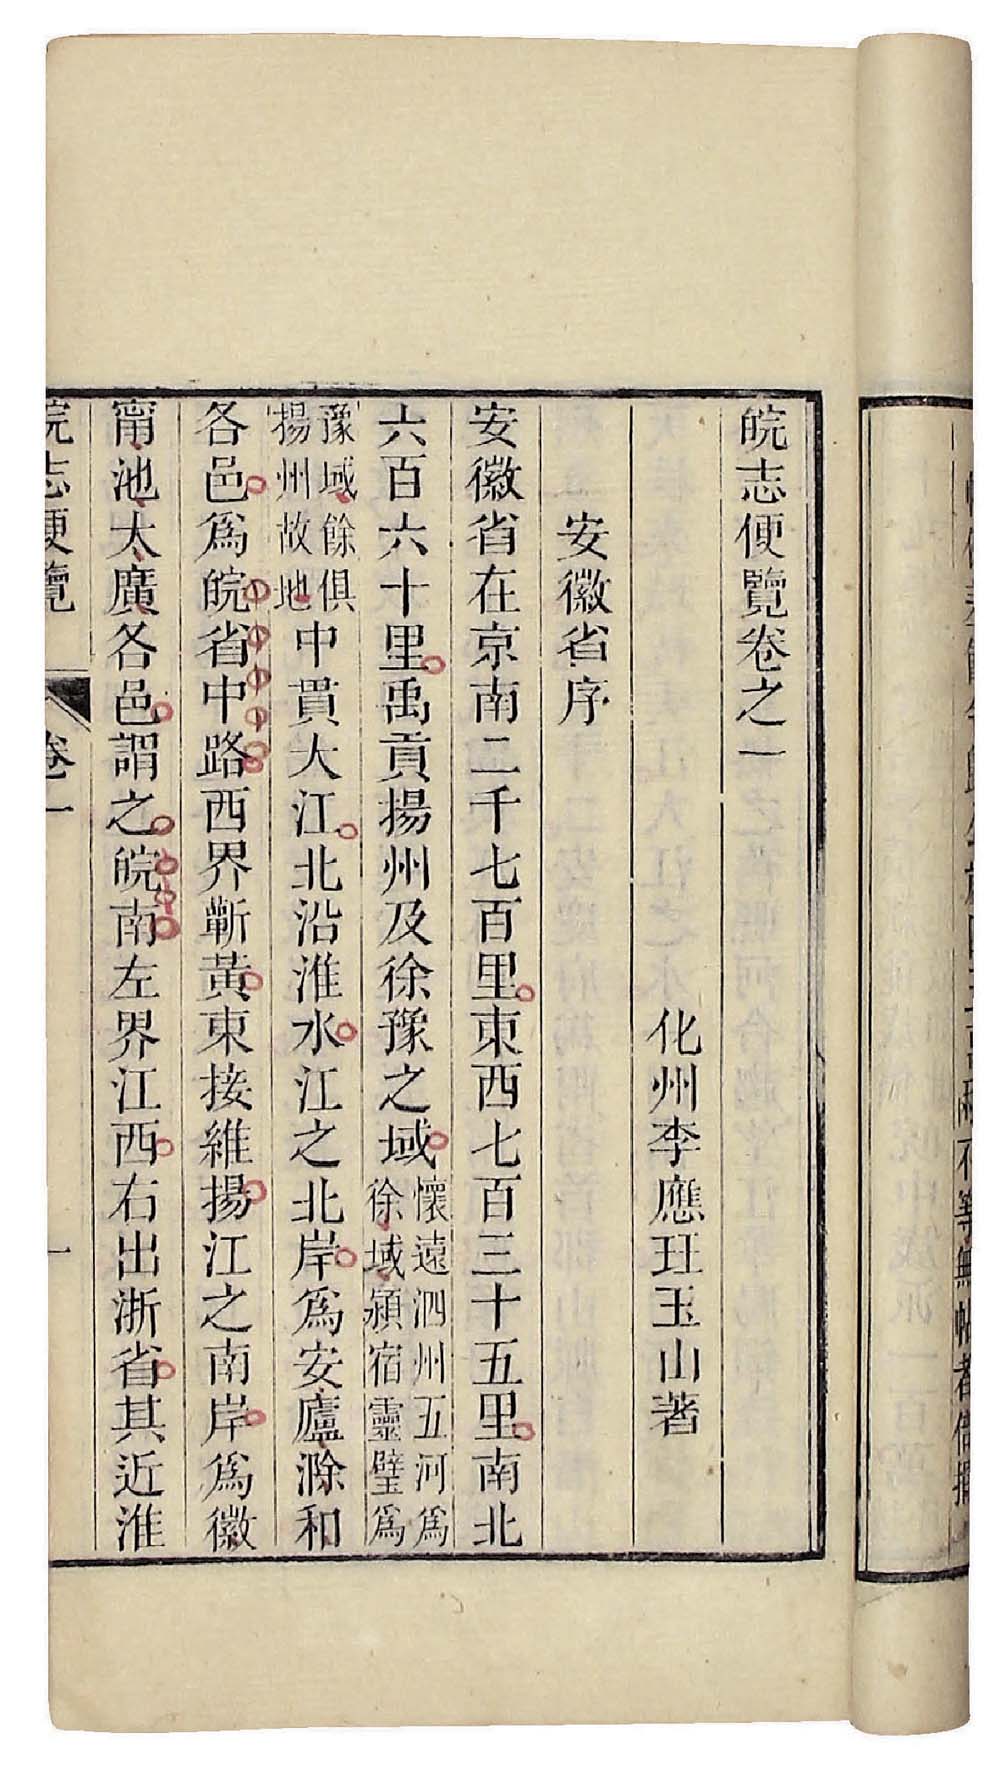 皖志便覽卷之一
化州李應珏玉山著
安徽省序
安徽省在京南二千七百里東西七百三十五里南北
六百六十里禹貢揚州及徐豫之域懷遠泗州五河爲徐域潁宿靈璧爲
豫域餘俱揚州故地中貫大江北沿淮水江之北岸爲安廬滁和
各邑爲皖省中路西界蘄黃東接維揚江之南岸爲徽
甯池太廣各邑謂之皖南左界江西右出浙省其近淮
皖志便覽 卷一 一